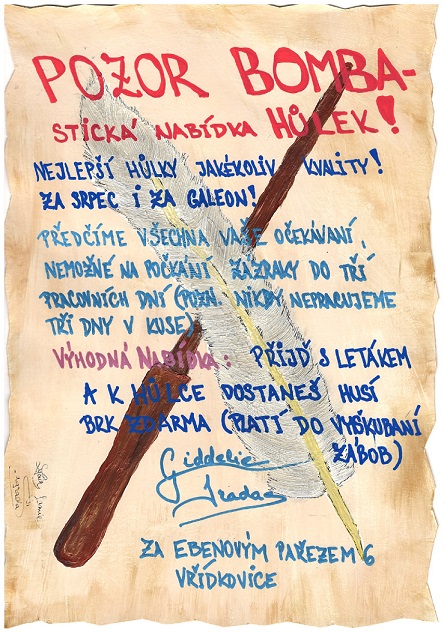 POZOR BOMBA-
STICKÁ NABÍDKA HŮLEK!
NEJLEPŠÍ HŮLKY JAKÉKOLIV KVALITY!
ZA SRPEC I ZA GALEON!
PŘEDČÍME VŠECHNA VAŠE OČEKÁVÁNÍ,
NEMOŽNÉ NA POČKÁNÍ, ZÁZRAKY DO TŘÍ
PRACOVNÍCH DNÍ (POZN. NIKDY NEPRACUJEME
TŘI DNY V KUSE)
VÝHODNÁ NABÍDKA: PŘIJĎ S LETÁKEM
A K HŮLCE DOSTANEŠ HUSÍ
BRK ZDARMA (PLATÍ DO VYŠKUBÁNÍ
ZÁSOB)
ZA EBENOVÝM PAŘEZEM 6
VŘÍDKOVICE